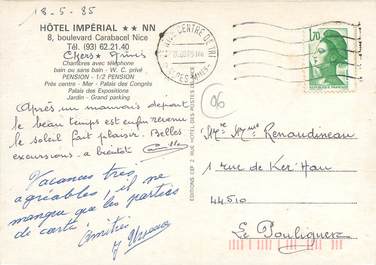 18-5-85
HÔTEL IMPÉRIAL ★★ NN
8, boulevard Carabacel Nice
Tél. (93) 62.21.40
Chers
Chambres avec téléphone
bain ou sans bain - W. C. privé
PENSION - 1/2 PENSION
Près centre - Mer - Palais des Congrès
Palais des Expositions
Jardin - Grand parking
Après un mauvais départ
le beau temps est enfin revenu
le soleil fait plaisir. Belles
excursions. a bientôt
Vacances très
agréables, il ne
manque que les parties
de carte. Amitiés
EDITIONS CEF
NICE CENTRE DE TRI
1,70
06
Mr et Mme Renaudineau
1 rue de Ker'Han
44510
Le Pouliguen